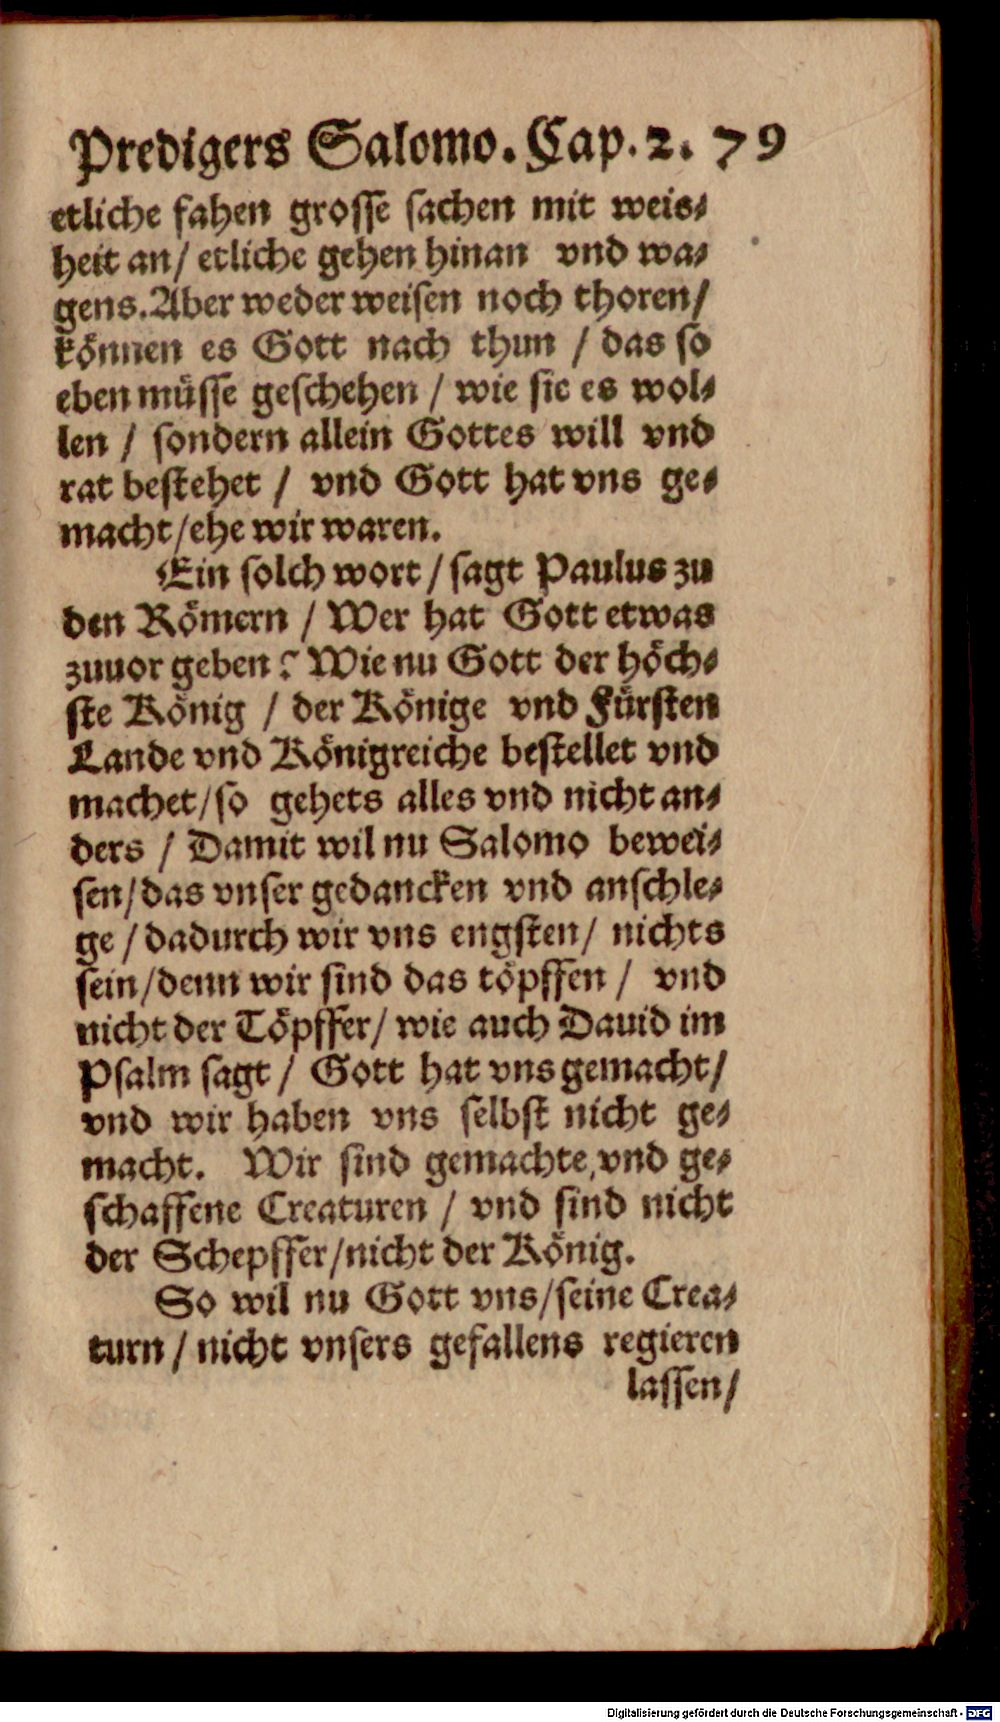 Predigers Salomo. Cap. 2. 79
etliche fahen grosse sachen mit weis⸗
heit an/ etliche gehen hinan vnd wa⸗
gens. Aber weder weisen noch thoren/
können es Gott nach thun / das so
eben müsse geschehen / wie sie es wol⸗
len / sondern allein Gottes will vnd
rat bestehet / vnd Gott hat vns ge⸗
macht/ehe wir waren.
Ein solch wort / sagt Paulus zu
den Römern / Wer hat Gott etwas
zuuor geben? Wie nu Gott der höch⸗
ste König / der Könige vnd Fürsten
Lande vnd Königreiche bestellet vnd
machet/so gehets alles vnd nicht an⸗
ders / Damit wil nu Salomo bewei⸗
sen/das vnser gedancken vnd anschle⸗
ge / dadurch wir vns engsten/ nichts
sein/denn wir sind das töpffen / vnd
nicht der Töpffer/ wie auch Dauid im
Psalm sagt / Gott hat vns gemacht/
vnd wir haben vns selbst nicht ge⸗
macht. Wir sind gemachte,vnd ge⸗
schaffene Creaturen / vnd sind nicht
der Schepffer/nicht der König.
So wil nu Gott vns/seine Crea⸗
turn / nicht vnsers gefallens regieren
lassen/
Digitalisierung gefördert durch die Deutsche Forschungsgemeinschaft - DFG